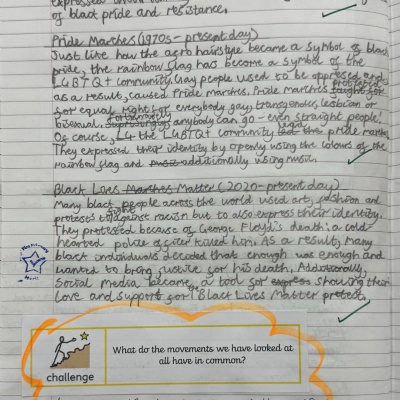 expressed
of black pride and resistance.
Pride Marches (1970s - present day)
Just like how the afro hairstyle became a symbol of black
pride, the rainbow flag has become a symbol of the
LGBTQ+ community. Gay people used to be oppressed and
as a result, caused Pride marches. Pride marches protested
for equal right for everybody gay, transgender, lesbian or
bisexual. Fortunately anybody can go - even straight people!
Of course, the LGBTQ+ community lead the pride marches.
They expressed their identity by openly using the colours of the
rainbow flag and additionally using music.
Black Lives Matter (2020-present day)
Many black people across the world used art, fashion and
protests to fight against racism but to also express their identity.
They protested because of George Floyd's death: a cold
hearted police officer killed him. As a result, many
black individuals decided that enough was enough and
wanted to bring justice for his death. Additionally,
social media became a tool for showing their
love and support for Black Lives Matter protest.
What do the movements we have looked at
all have in common?
challenge